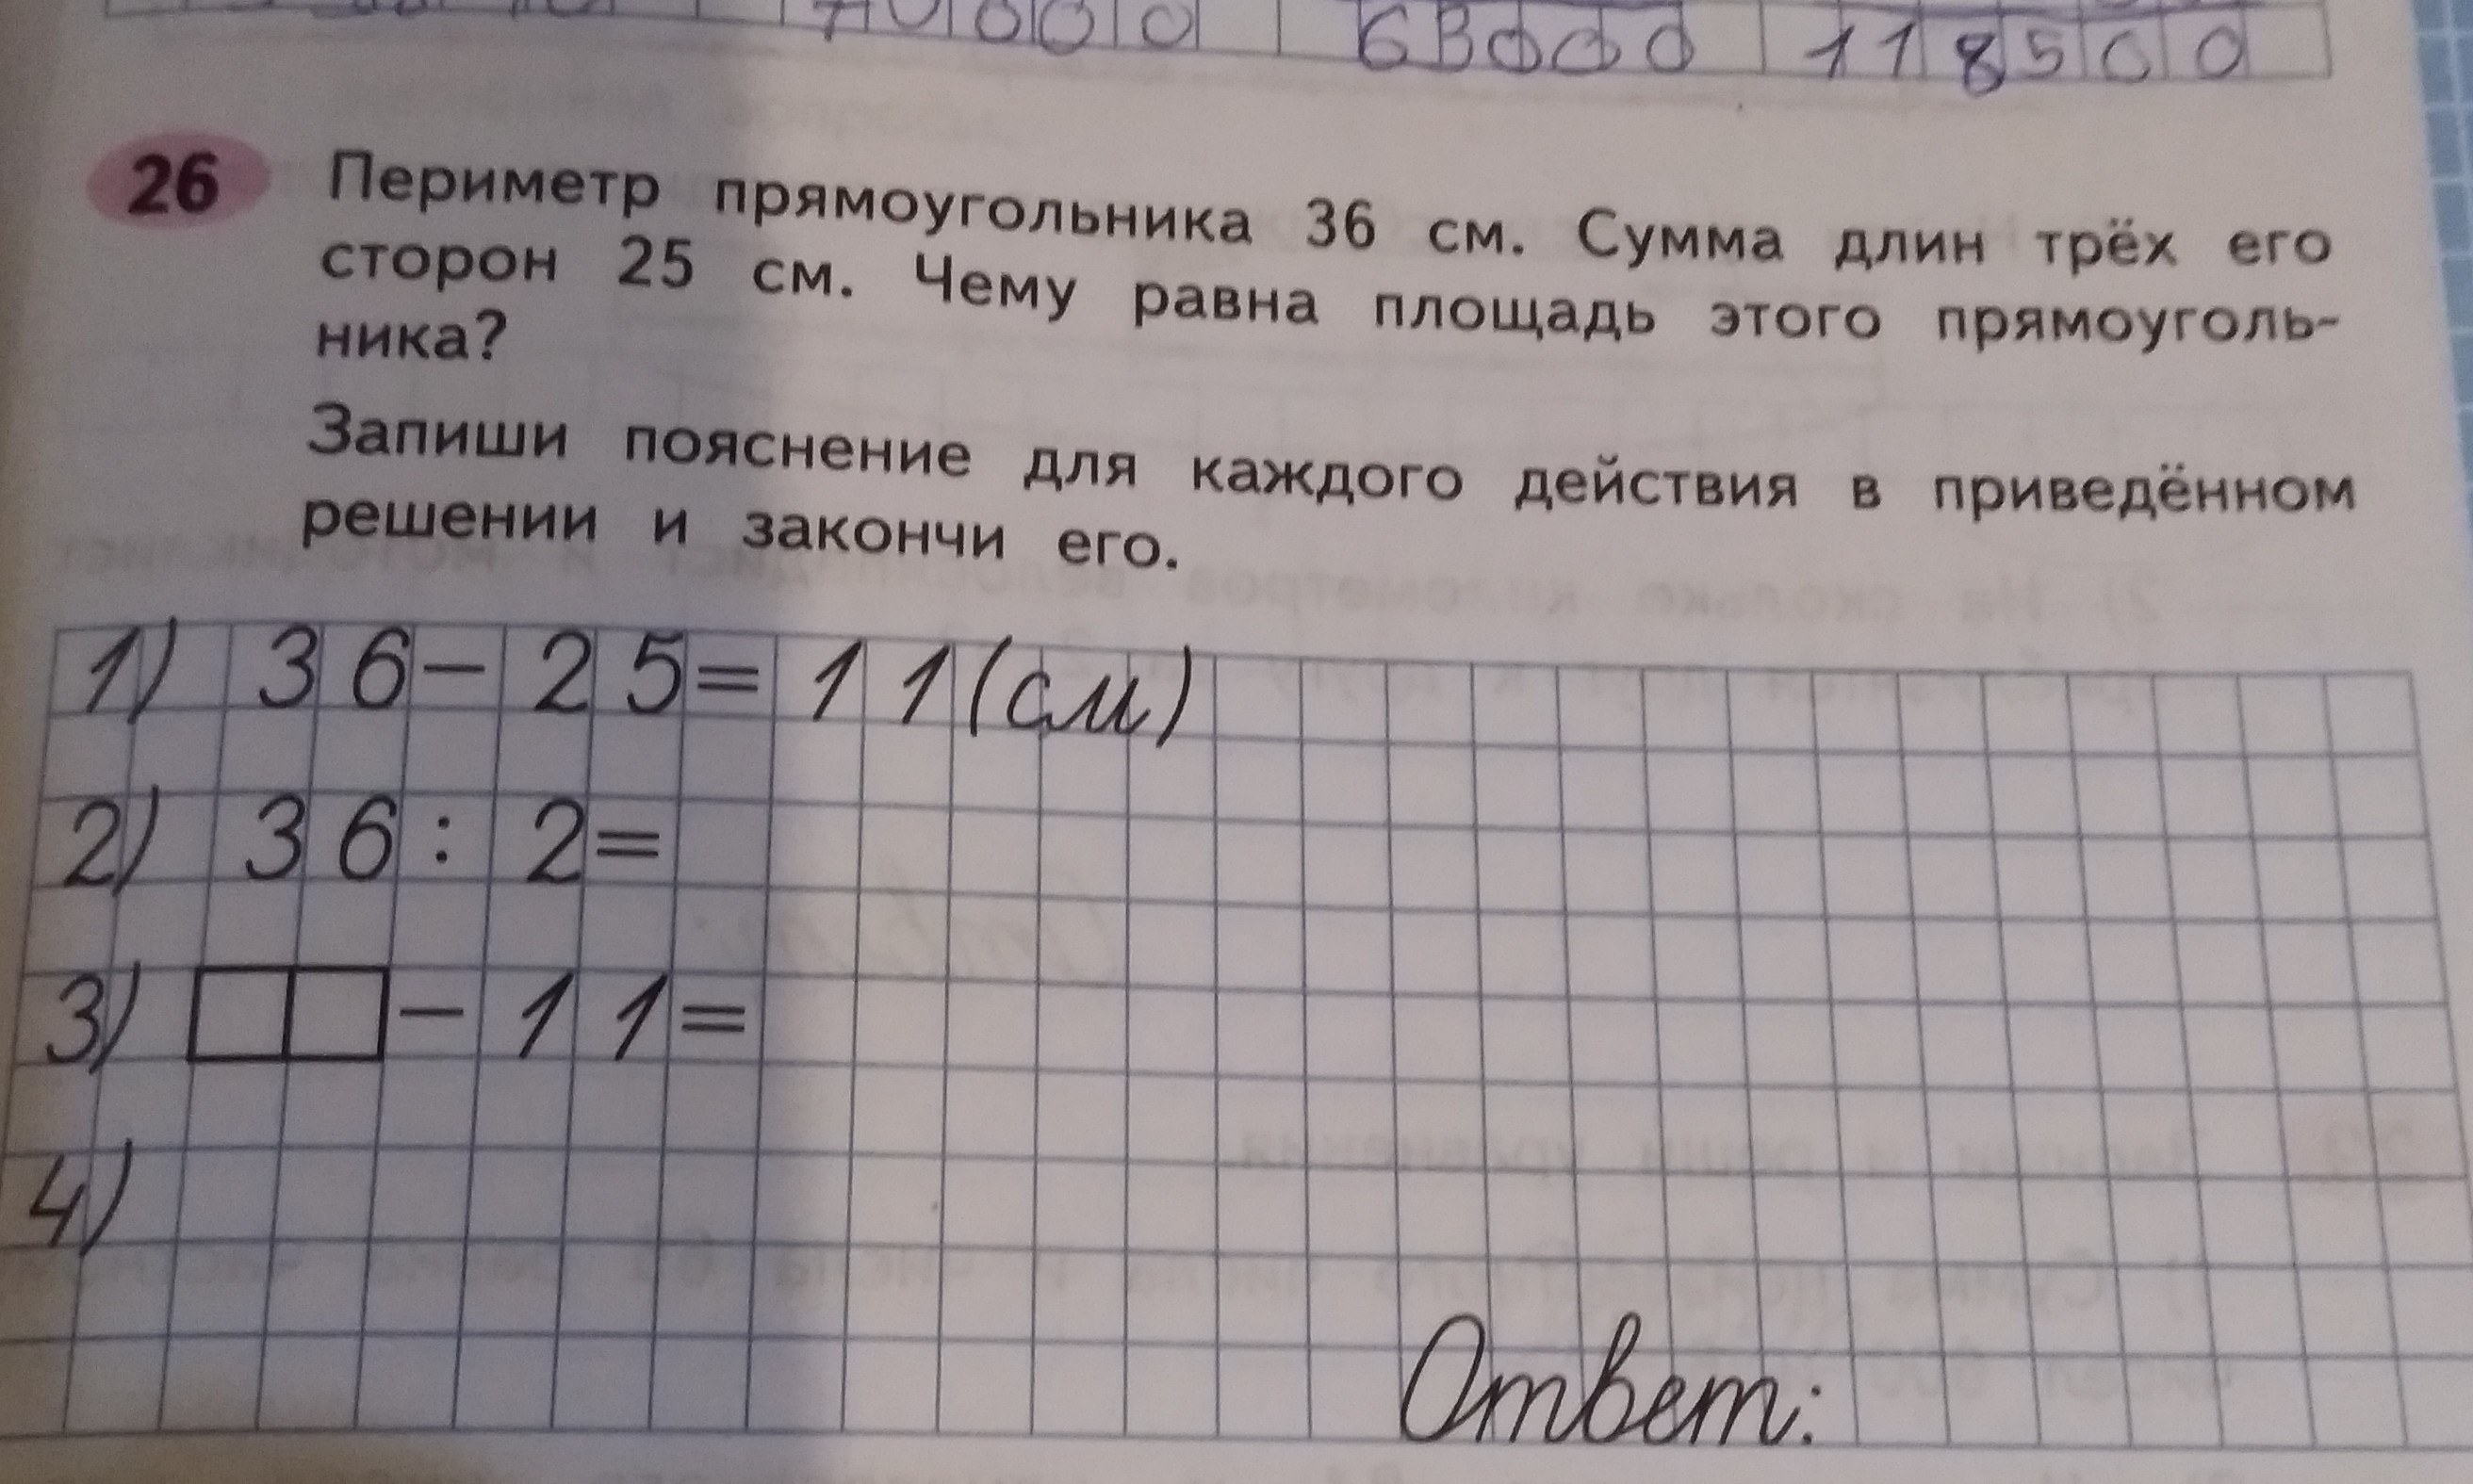 0000 63000 118500
26 Периметр прямоугольника 36 см. Сумма длин трёх его
сторон 25 см. Чему равна площадь этого прямоуголь-
ника?
Запиши пояснение для каждого действия в приведённом
решении и закончи его.
1) 36-25=11(см)
2) 36:2=
3) -11=
4)
Ответ: